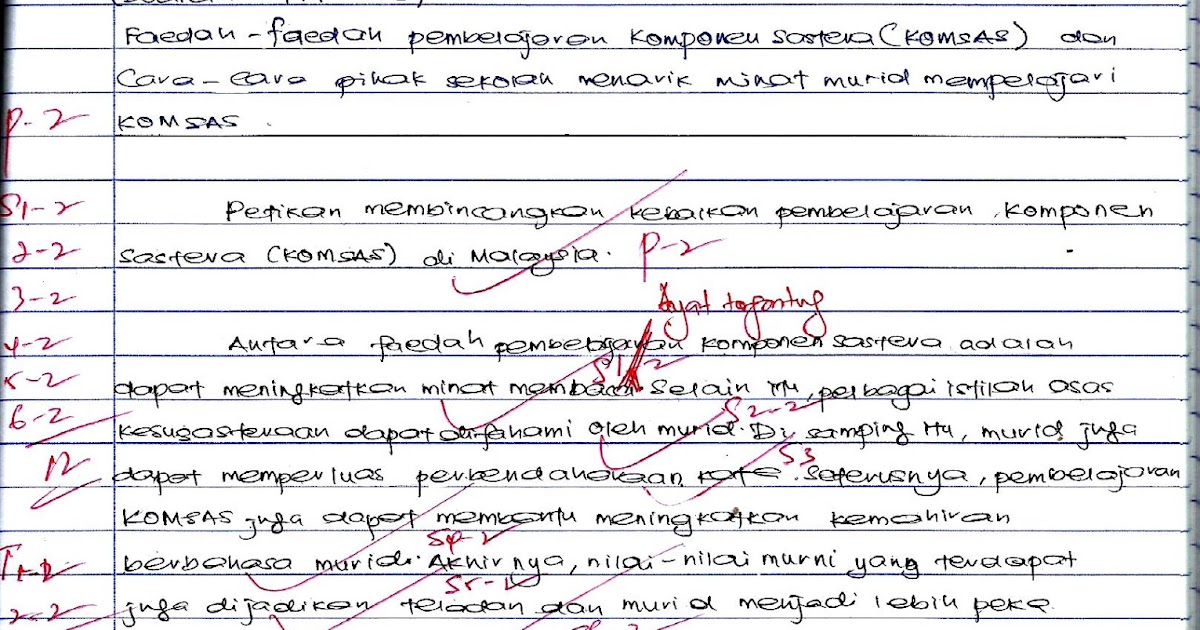 Faedah-faedah pembelajaran komponen sastera (KOMSAS) dan
Cara-cara pihak sekolah menarik minat murid mempelajari
P-2 KOMSAS.
S1-2 Petikan membincangkan kebaikan pembelajaran komponen
2-2 sastera (KOMSAS) di Malaysia. P-2
3-2 Ayat tergantung
4-2 Antara faedah pembelajaran komponen sastera adalah
5-2 dapat meningkatkan minat membaca selain itu, pelbagai istilah asas
S1-2 S2-2
6-2 kesusasteraan dapat difahami oleh murid. Di samping itu, murid juga
S3
12 dapat memperluas perbendaharaan kata. Seterusnya, pembelajaran
KOMSAS juga dapat membantu meningkatkan kemahiran
S4-2
berbahasa murid. Akhirnya, nilai-nilai murni yang terdapat
S5-2
2-2 juga dijadikan teladan dan murid menjadi lebih peka